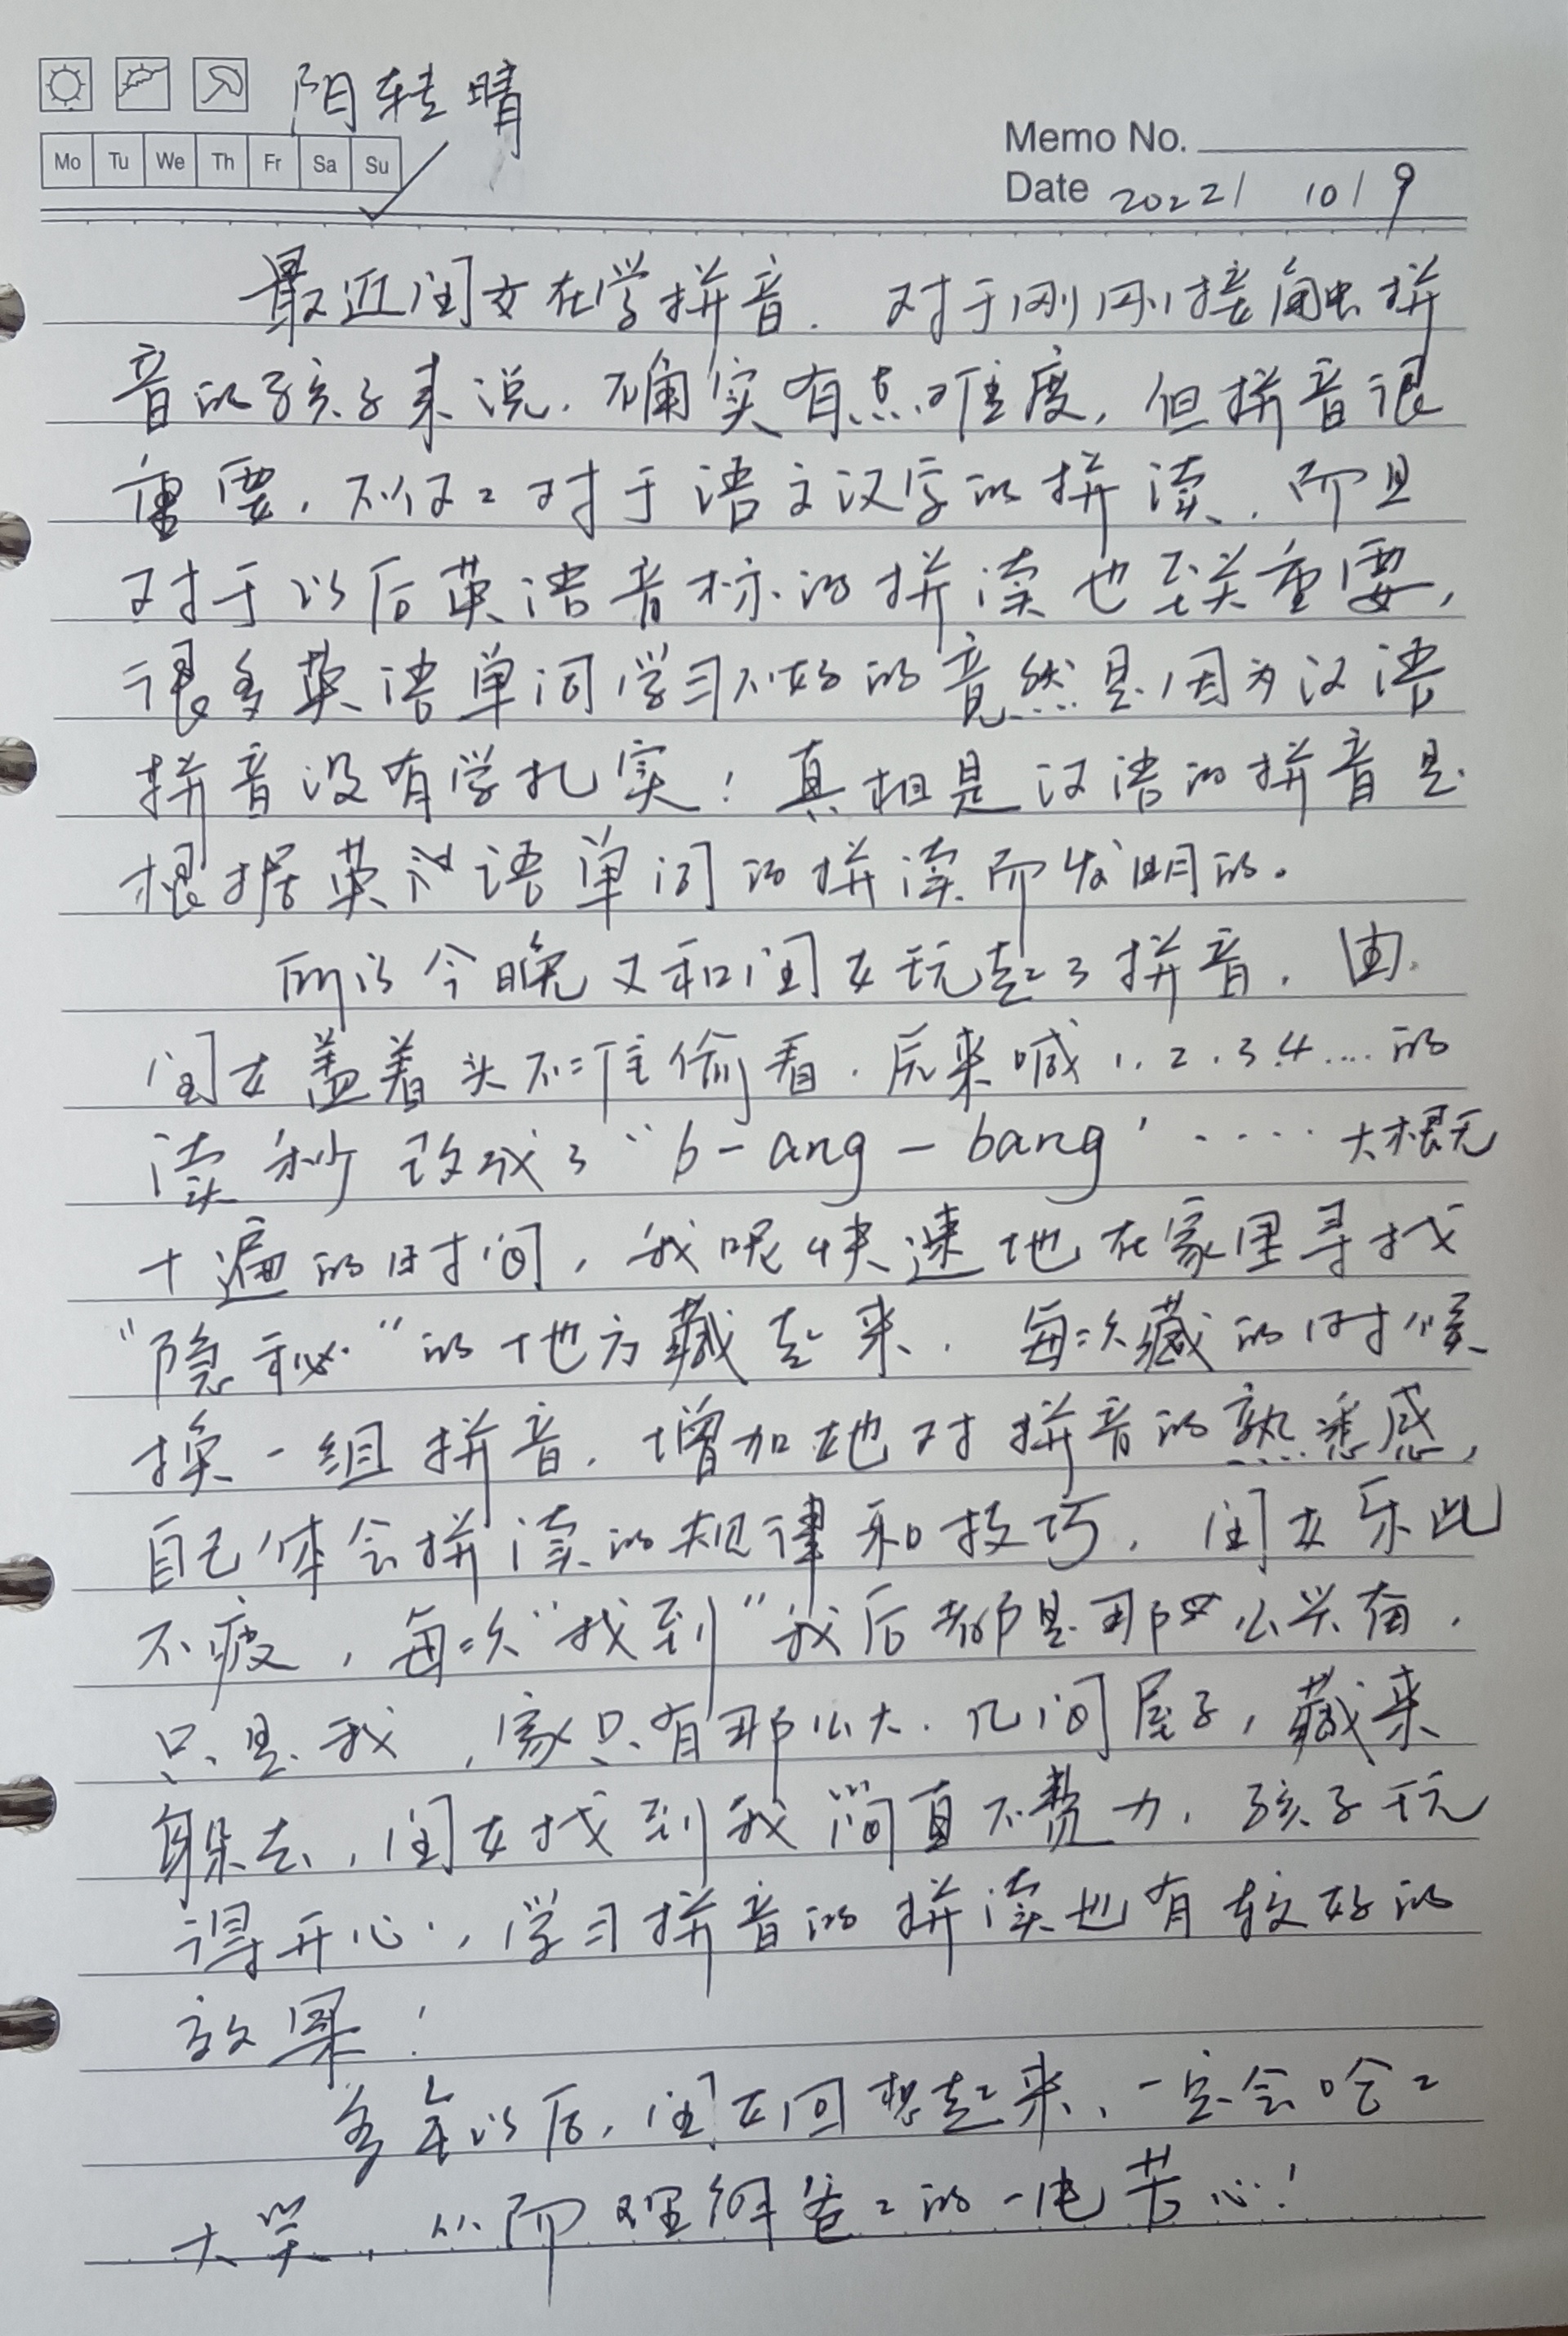 阴转晴
Mo Tu We Th Fr Sa Su
Memo No.
Date 2022/ 10/9
最近闺女在学拼音.对于刚刚接触拼
音的孩子来说.确实有点难度,但拼音很
重要,不仅仅对于语文汉字的拼读.而且
对于以后英语音标的拼读也至关重要,
很多英语单词学习不好的竟然是因为汉语
拼音没有学扎实!真相是汉语的拼音是
根据英语单词的拼读而发明的。
所以今晚又和闺女玩起了拼音.由
闺女盖着头不准偷看.原来喊1.2.3.4....的
读秒改成了“b-ang-bang”····大概无
十遍的时间,我呢快速地在家里寻找
“隐秘”的地方藏起来.每次藏的时候
换一组拼音.增加她对拼音的熟悉感,
自己体会拼读的规律和技巧.闺女乐此
不疲,每次“找到”我后都是那么兴奋.
只是我,家只有那么大.几间屋子,藏来
躲去,闺女找到我简直不费力.孩子玩
得开心,学习拼音的拼读也有较好的
效果!
多年以后,闺女回想起来、一定会哈哈
大笑,从而理解爸爸的一片苦心!